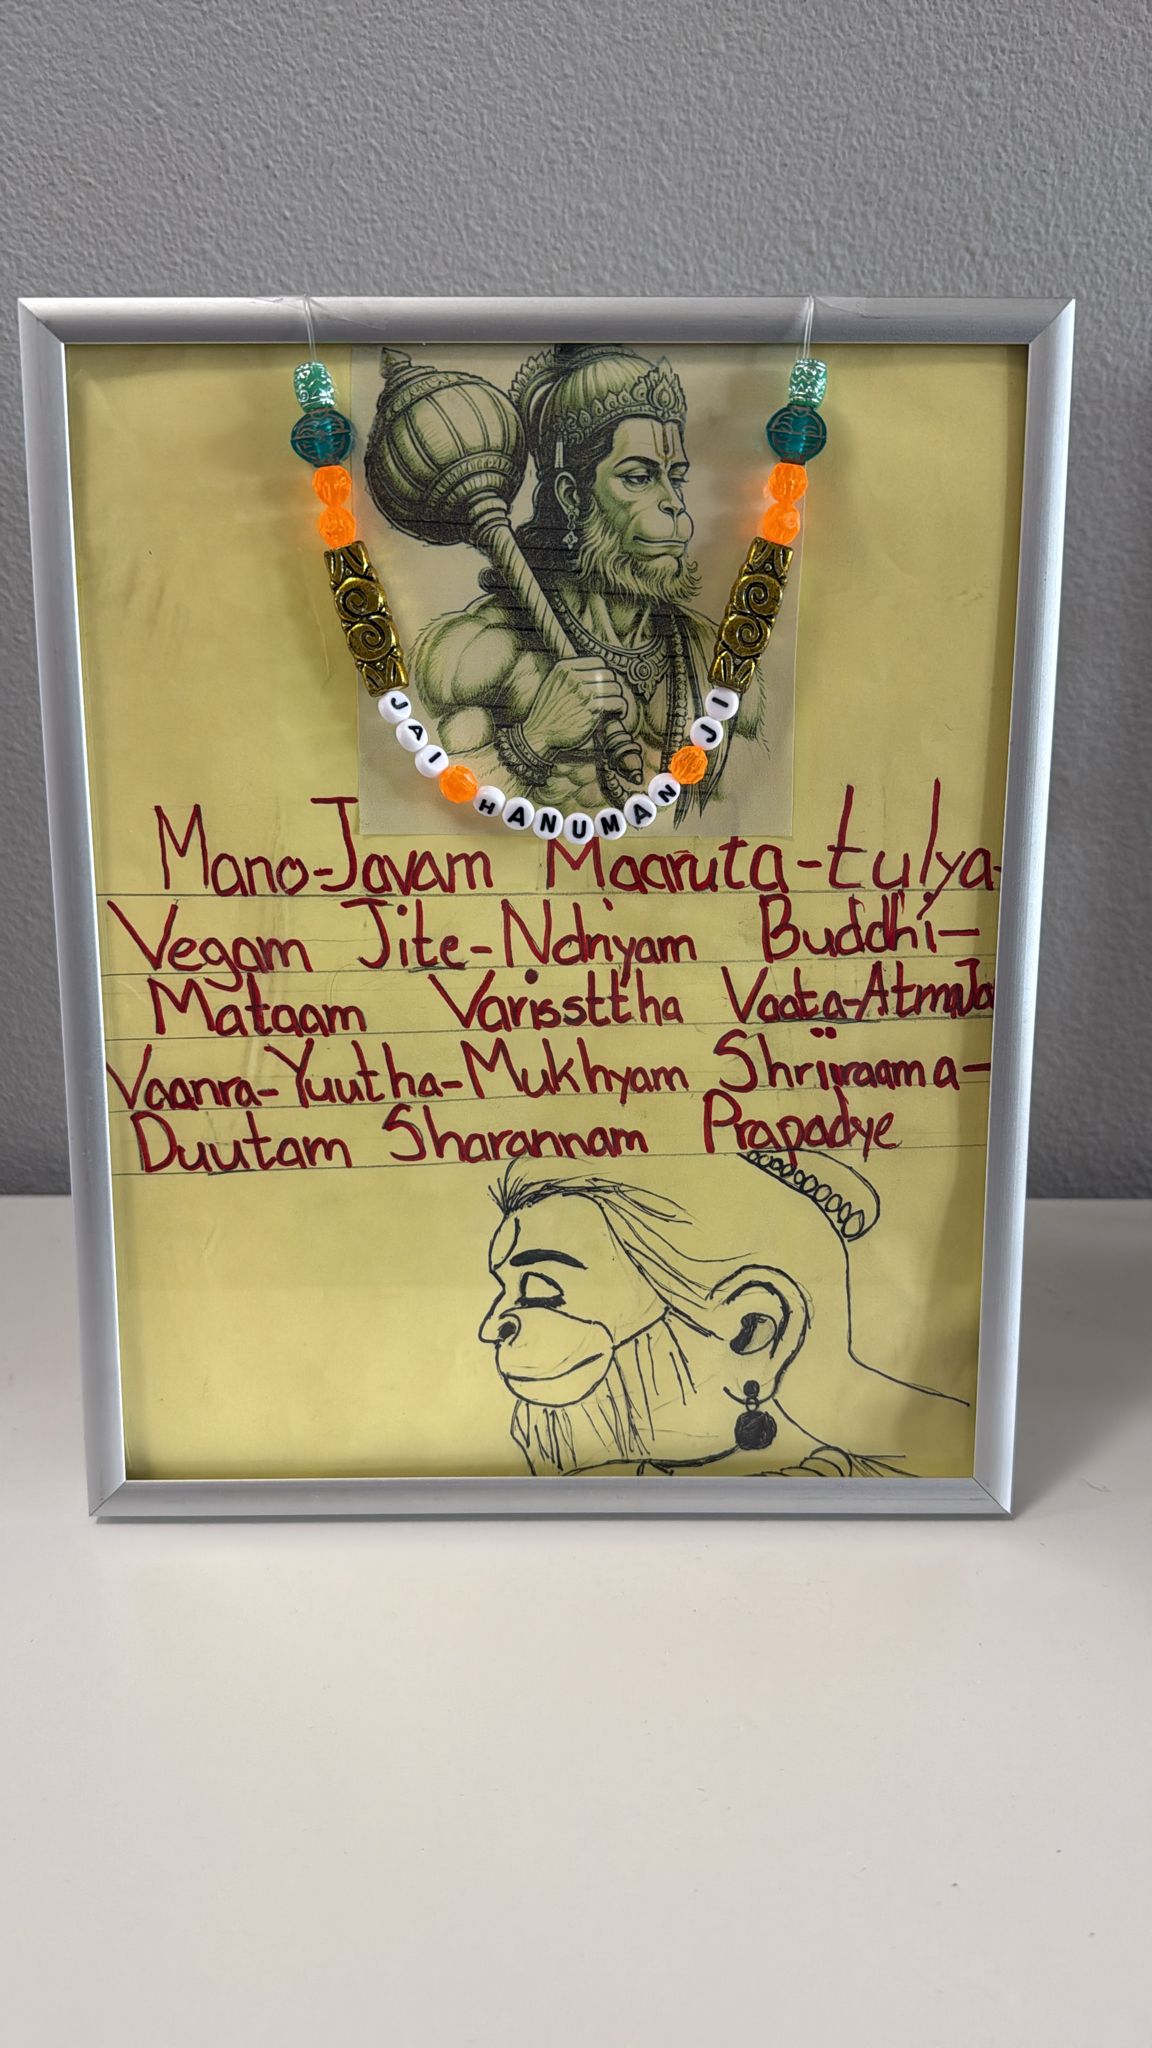 JAI HANUMAN JI
Mano-Javam Maaruta-tulya-
Vegam Jite-Ndriyam Buddhi-
Mataam Varissttha Vaata-AtmaJa
Vaanra-Yuutha-Mukhyam Shriiraama-
Duutam Sharannam Prapadye